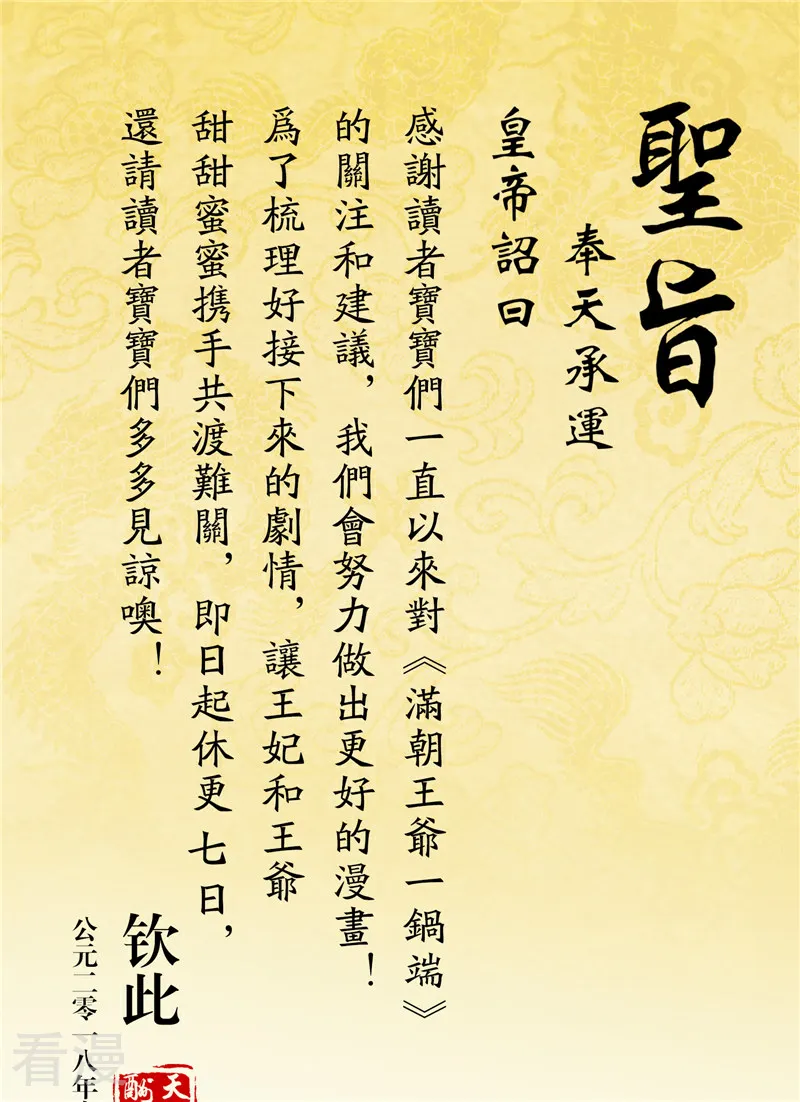 聖旨
奉天承運
皇帝詔曰
感謝讀者寶寶們一直以來對《滿朝王爺一鍋端》
的關注和建議，我們會努力做出更好的漫畫！
爲了梳理好接下來的劇情，讓王妃和王爺
甜甜蜜蜜携手共渡難關，即日起休更七日，
還請讀者寶寶們多多見諒噢！
钦此
公元二零一八年
天
看漫